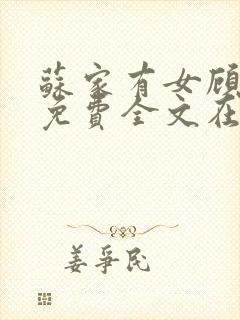 蘇家有女顾
免費全文在
姜爭民